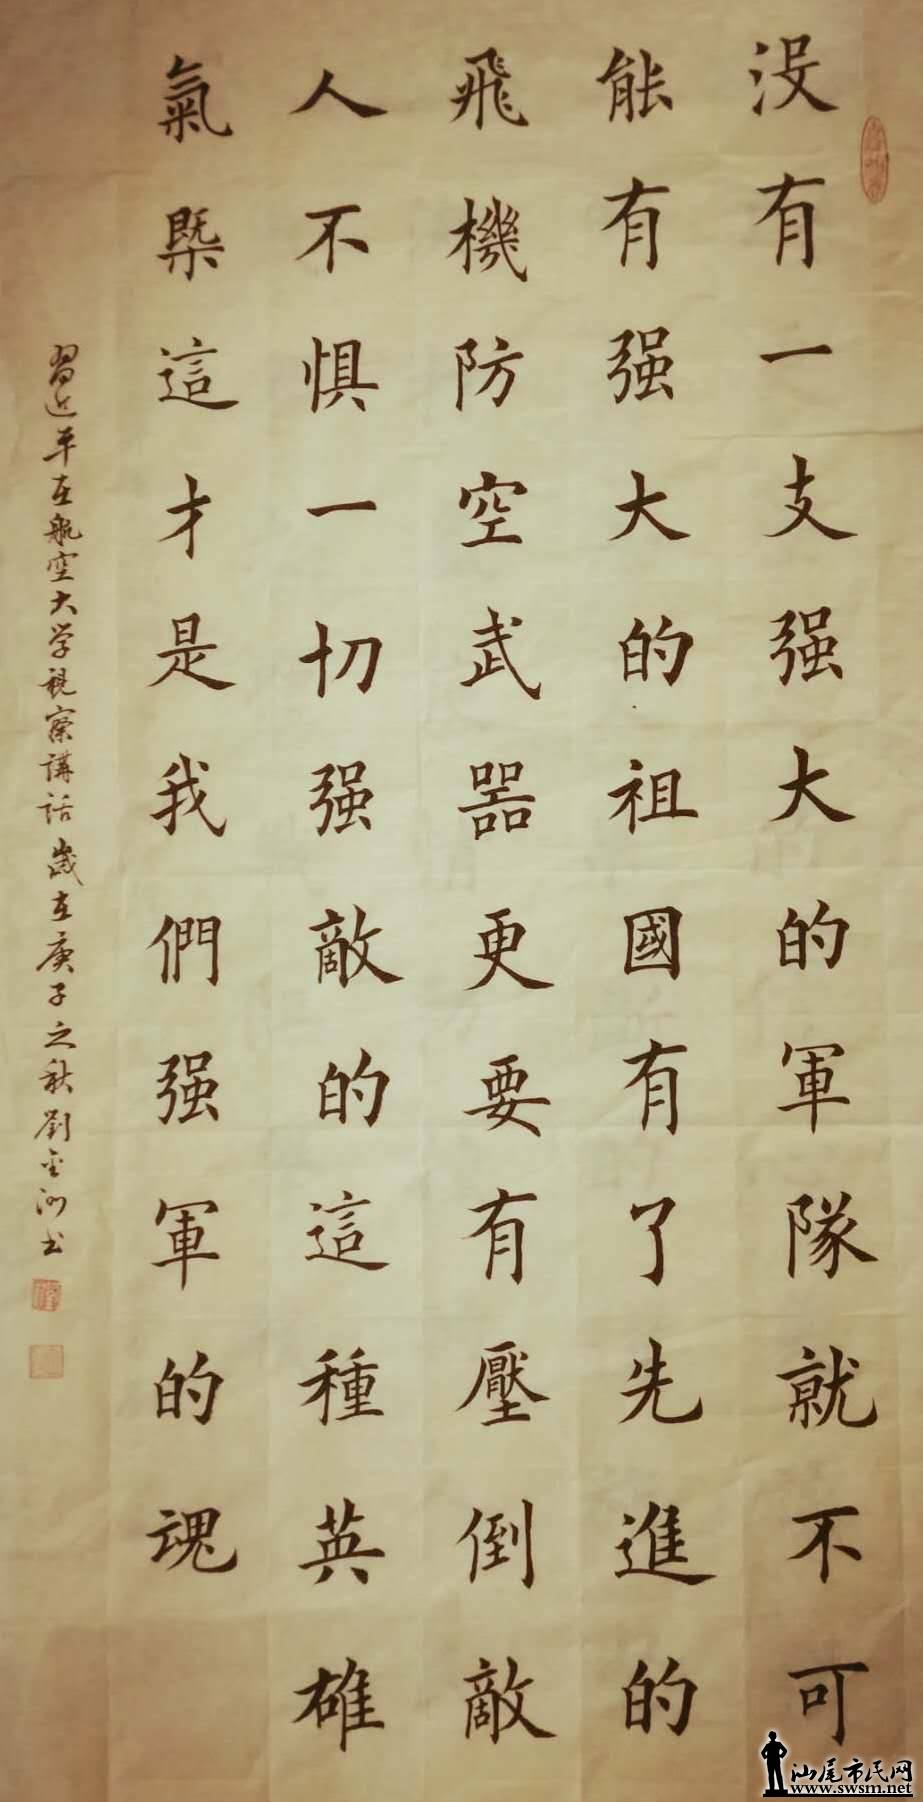 没有一支强大的軍隊就不可
能有强大的祖國有了先進的
飛機防空武器更要有壓倒敵
人不懼一切强敵的這種英雄
氣槩這才是我們强軍的魂
習近平在航空大学視察講話歲在庚子之秋劉金洲书
汕尾市民网
www.swsm.net